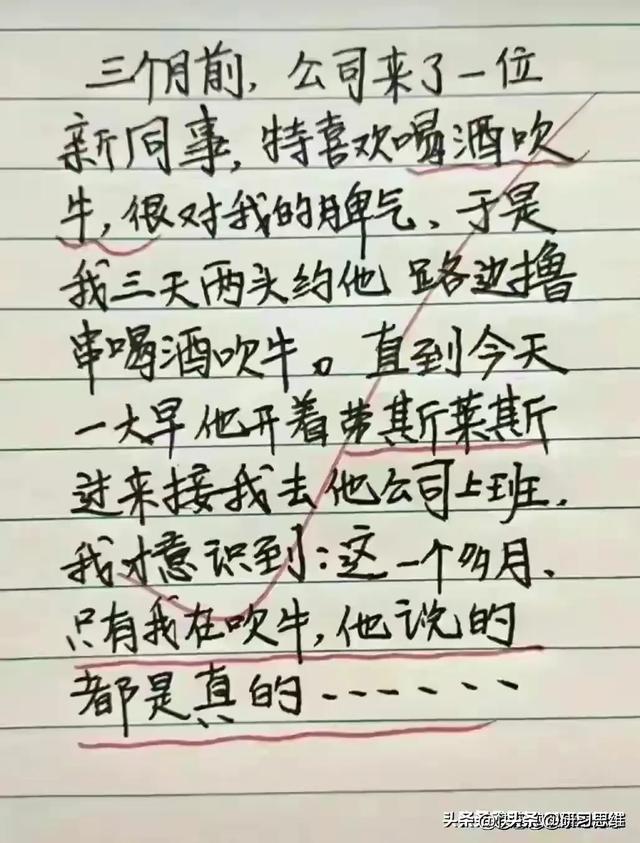 三个月前,公司来了一位
新同事,特喜欢喝酒吹
牛,很对我的脾气、于是
我三天两头约他路边撸
串喝酒吹牛。直到今天
一大早他开着劳斯莱斯
过来接我去他公司上班.
我才意识到:这一个多月、
只有我在吹牛,他说的
都是真的······
头条 @研习思维